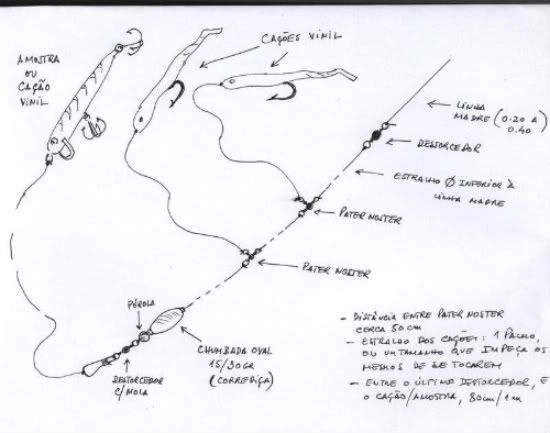 AMOSTRA
OU
CAÇÃO
VINIL
CAÇÕES VINIL
LINHA
MADRE (0.20 A
0.40
DESTORCEDOR
ESTRALHO Ø INFERIOR À
LINHA MADRE
PATER NOSTER
PATER NOSTER
PÉROLA
CHUMBADA OVAL
15/30GR
(CORREDIÇA)
DESTORCEDOR
C/MOLA
- DISTÂNCIA ENTRE PATER NOSTER
CERCA 50cm
- ESTRALHO DOS CAÇÕES: 1 PALMO,
OU UM TAMANHO QUE IMPEÇA OS
MESMOS DE SE TOCAREM
- ENTRE O ÚLTIMO DESTORCEDOR, E
O CAÇÃO/AMOSTRA, 80cm/1m